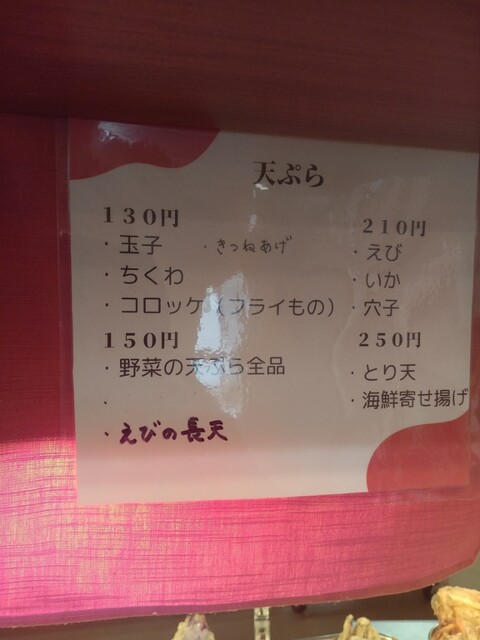 天ぷら
130円
・玉子 ・きつねあげ
・ちくわ
・コロッケ（フライもの）
150円
・野菜の天ぷら全品
・
・えびの長天
210円
・えび
・いか
・穴子
250円
・とり天
・海鮮寄せ揚げ